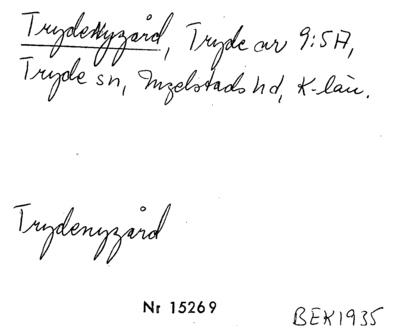 Trydenygård, Tryde ar 9:5A,
Tryde sn, Ingelstads hd, K-län.
Trydenygård
Nr 15269
BEK1935